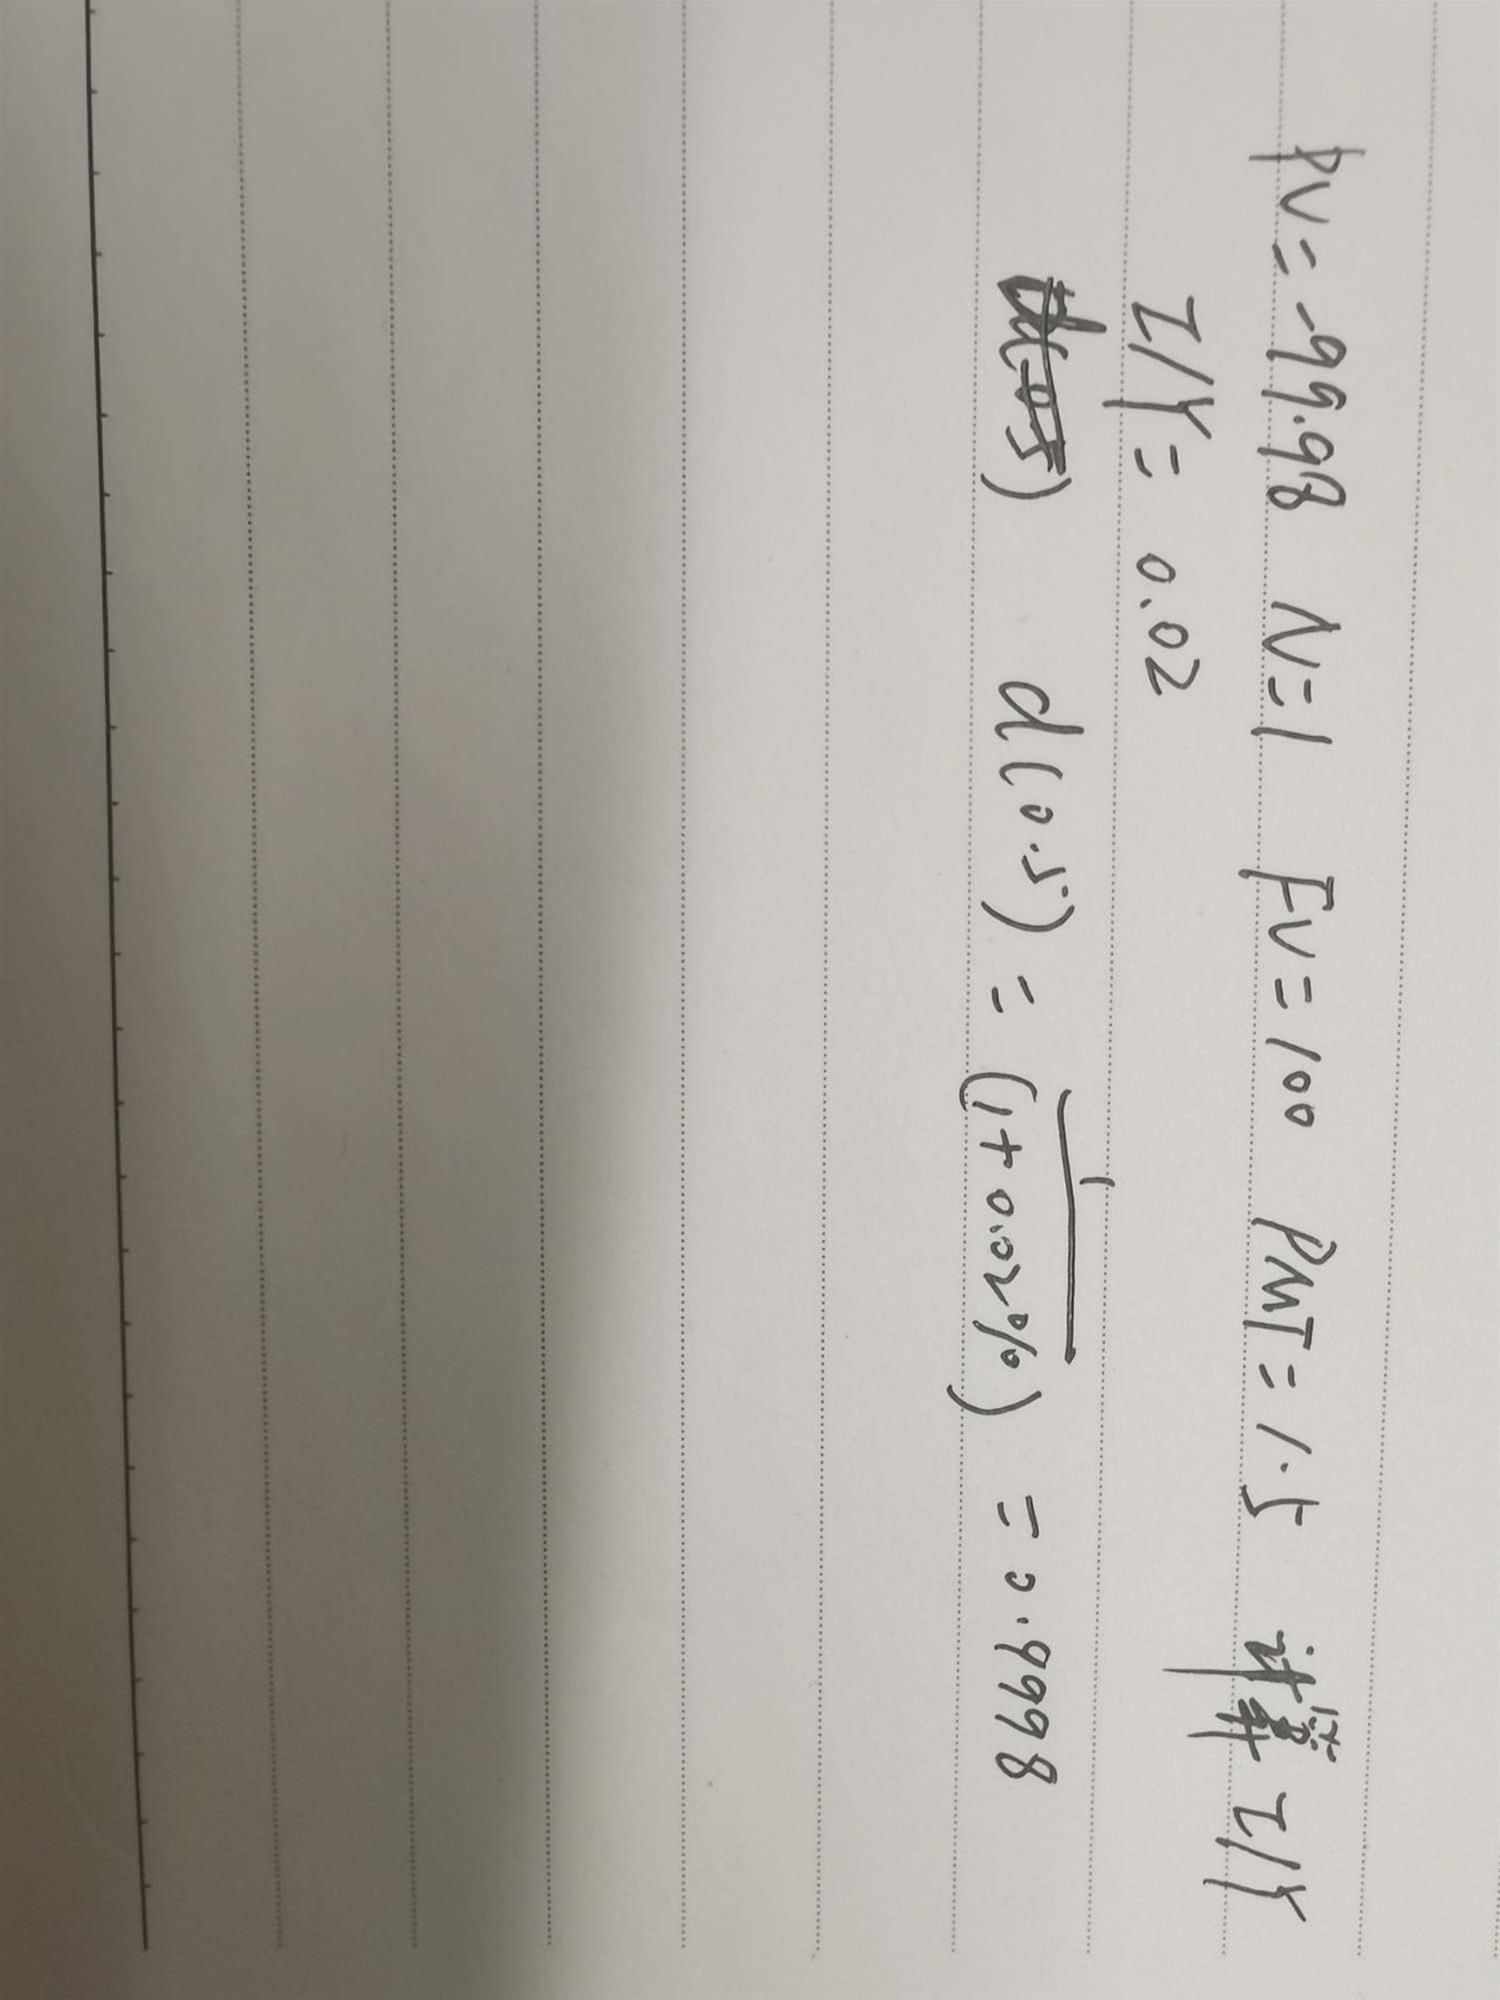 PV = -99.98 N=1 FV=100 PMT=1.5 计算 I/Y
I/Y = 0.02
d(0.5) = 1/(1+0.02%) = 0.9998